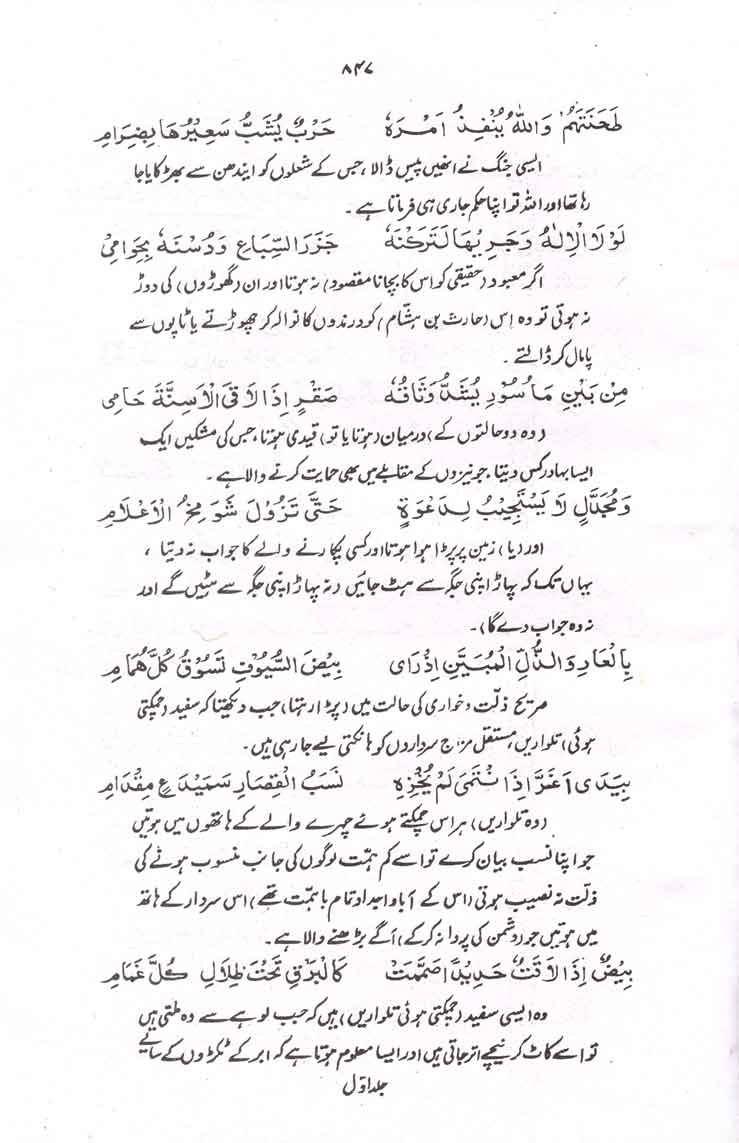 ۸۴۷
طَحَنَتْهُمْ وَاللّٰهُ يُنْفِذُ اَمْرَهٗ حَرْبٌ يُشَبُّ سَعِيْرُهَا بِضِرَامِ
ایسی جنگ نے انھیں پیس ڈالا، جس کے شعلوں کو ایندھن سے بھڑکایا جا
رہا تھا اور اللہ تو اپنا حکم جاری ہی فرماتا ہے۔
لَوْلَا الْاِلٰهُ وَجَرْيُهَا لَتَرَكْنَهٗ جَزَرَ السِّبَاعِ وَدُسْنَهٗ بِحَوَامِيْ
اگر معبود (حقیقی کو اس کا بچانا مقصود) نہ ہوتا اور ان (گھوڑوں) کی دوڑ
نہ ہوتی تو وہ اس (حارث بن ہشام) کو درندوں کا نوالہ کر چھوڑتے یا ٹاپوں سے
پامال کر ڈالتے۔
مِنْ بَيْنِ مَاْسُوْرٍ يُشَدُّ وَثَاقُهٗ صَقْرٍ اِذَا لَاقَى الْاَسِنَّةَ حَامِيْ
(وہ دو حالتوں کے) درمیان (ہوتا یا تو) قیدی ہوتا، جس کی مشکیں ایک
ایسا بہادر کس دیتا، جو نیزوں کے مقابلے میں بھی حمایت کرنے والا ہے۔
وَمُجَدَّلٍ لَا يَسْتَجِيْبُ لِدَعْوَةٍ حَتّٰى تَزُوْلَ شَوَامِخُ الْاَعْلَامِ
اور (یا) زمین پر پڑا ہوا ہوتا اور کسی پکارنے والے کا جواب نہ دیتا،
یہاں تک کہ پہاڑ اپنی جگہ سے ہٹ جائیں (نہ پہاڑ اپنی جگہ سے ہٹیں گے اور
نہ وہ جواب دے گا)۔
بِالْعَارِ وَالذُّلِّ الْمُبَيَّنِ اِذْ رَاٰى بِيْضَ السُّيُوْفِ تَسُوْقُ كُلَّ هُمَامِ
صریح ذلّت و خواری کی حالت میں (پڑا رہتا) جب دیکھتا کہ سفید (چمکتی
ہوئی) تلواریں مستقل مزاج سرداروں کو ہانکتی لیے جا رہی ہیں۔
بِيَدَيْ اَغَرَّ اِذَا انْتَمٰى لَمْ يُخْزِهٖ نَسَبُ الْقِصَارِ سَمَيْدَعٍ مِقْدَامِ
(وہ تلواریں) ہر اس چمکتے ہوئے چہرے والے کے ہاتھوں میں ہوتیں
جو اپنا نسب بیان کرے تو اسے کم ہمّت لوگوں کی جانب منسوب ہونے کی
ذلّت نہ نصیب ہوتی (اس کے آبا و اجداد تمام باہمّت تھے) اس سردار کے ہاتھ
میں ہوتیں جو (دشمن کی پروا نہ کر کے) آگے بڑھنے والا ہے۔
بِيْضٌ اِذَا لَاقَتْ حَدِيْدًا صَمَّمَتْ كَالْبَرْقِ تَحْتَ ظِلَالِ كُلِّ غَمَامِ
وہ ایسی سفید (چمکتی ہوئی تلواریں) ہیں کہ جب لوہے سے وہ ملتی ہیں
تو اسے کاٹ کر نیچے اتر جاتی ہیں اور ایسا معلوم ہوتا ہے کہ ابر کے ٹکڑوں کے سائے
جلد اوّل